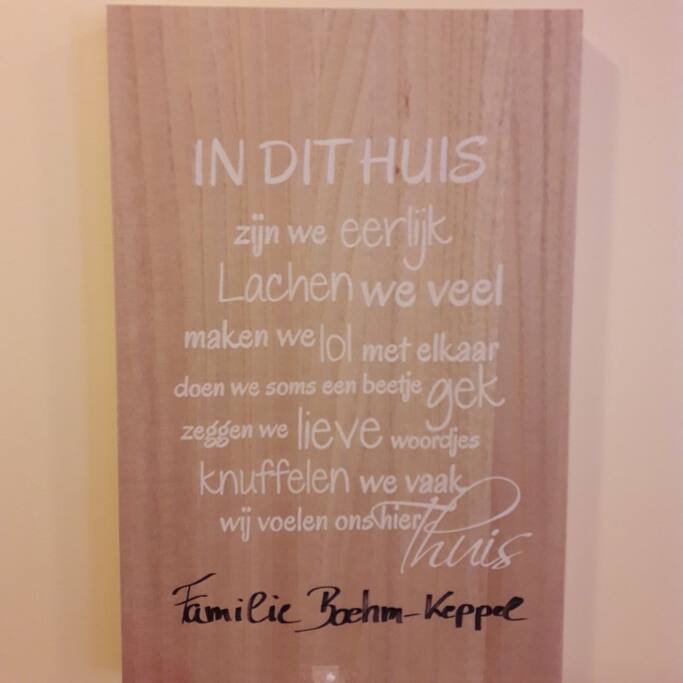 IN DIT HUIS
zijn we eerlijk
Lachen we veel
maken we lol met elkaar
doen we soms een beetje gek
zeggen we lieve woordjes
knuffelen we vaak
wij voelen ons hier Thuis
Familie Boehm-Keppel